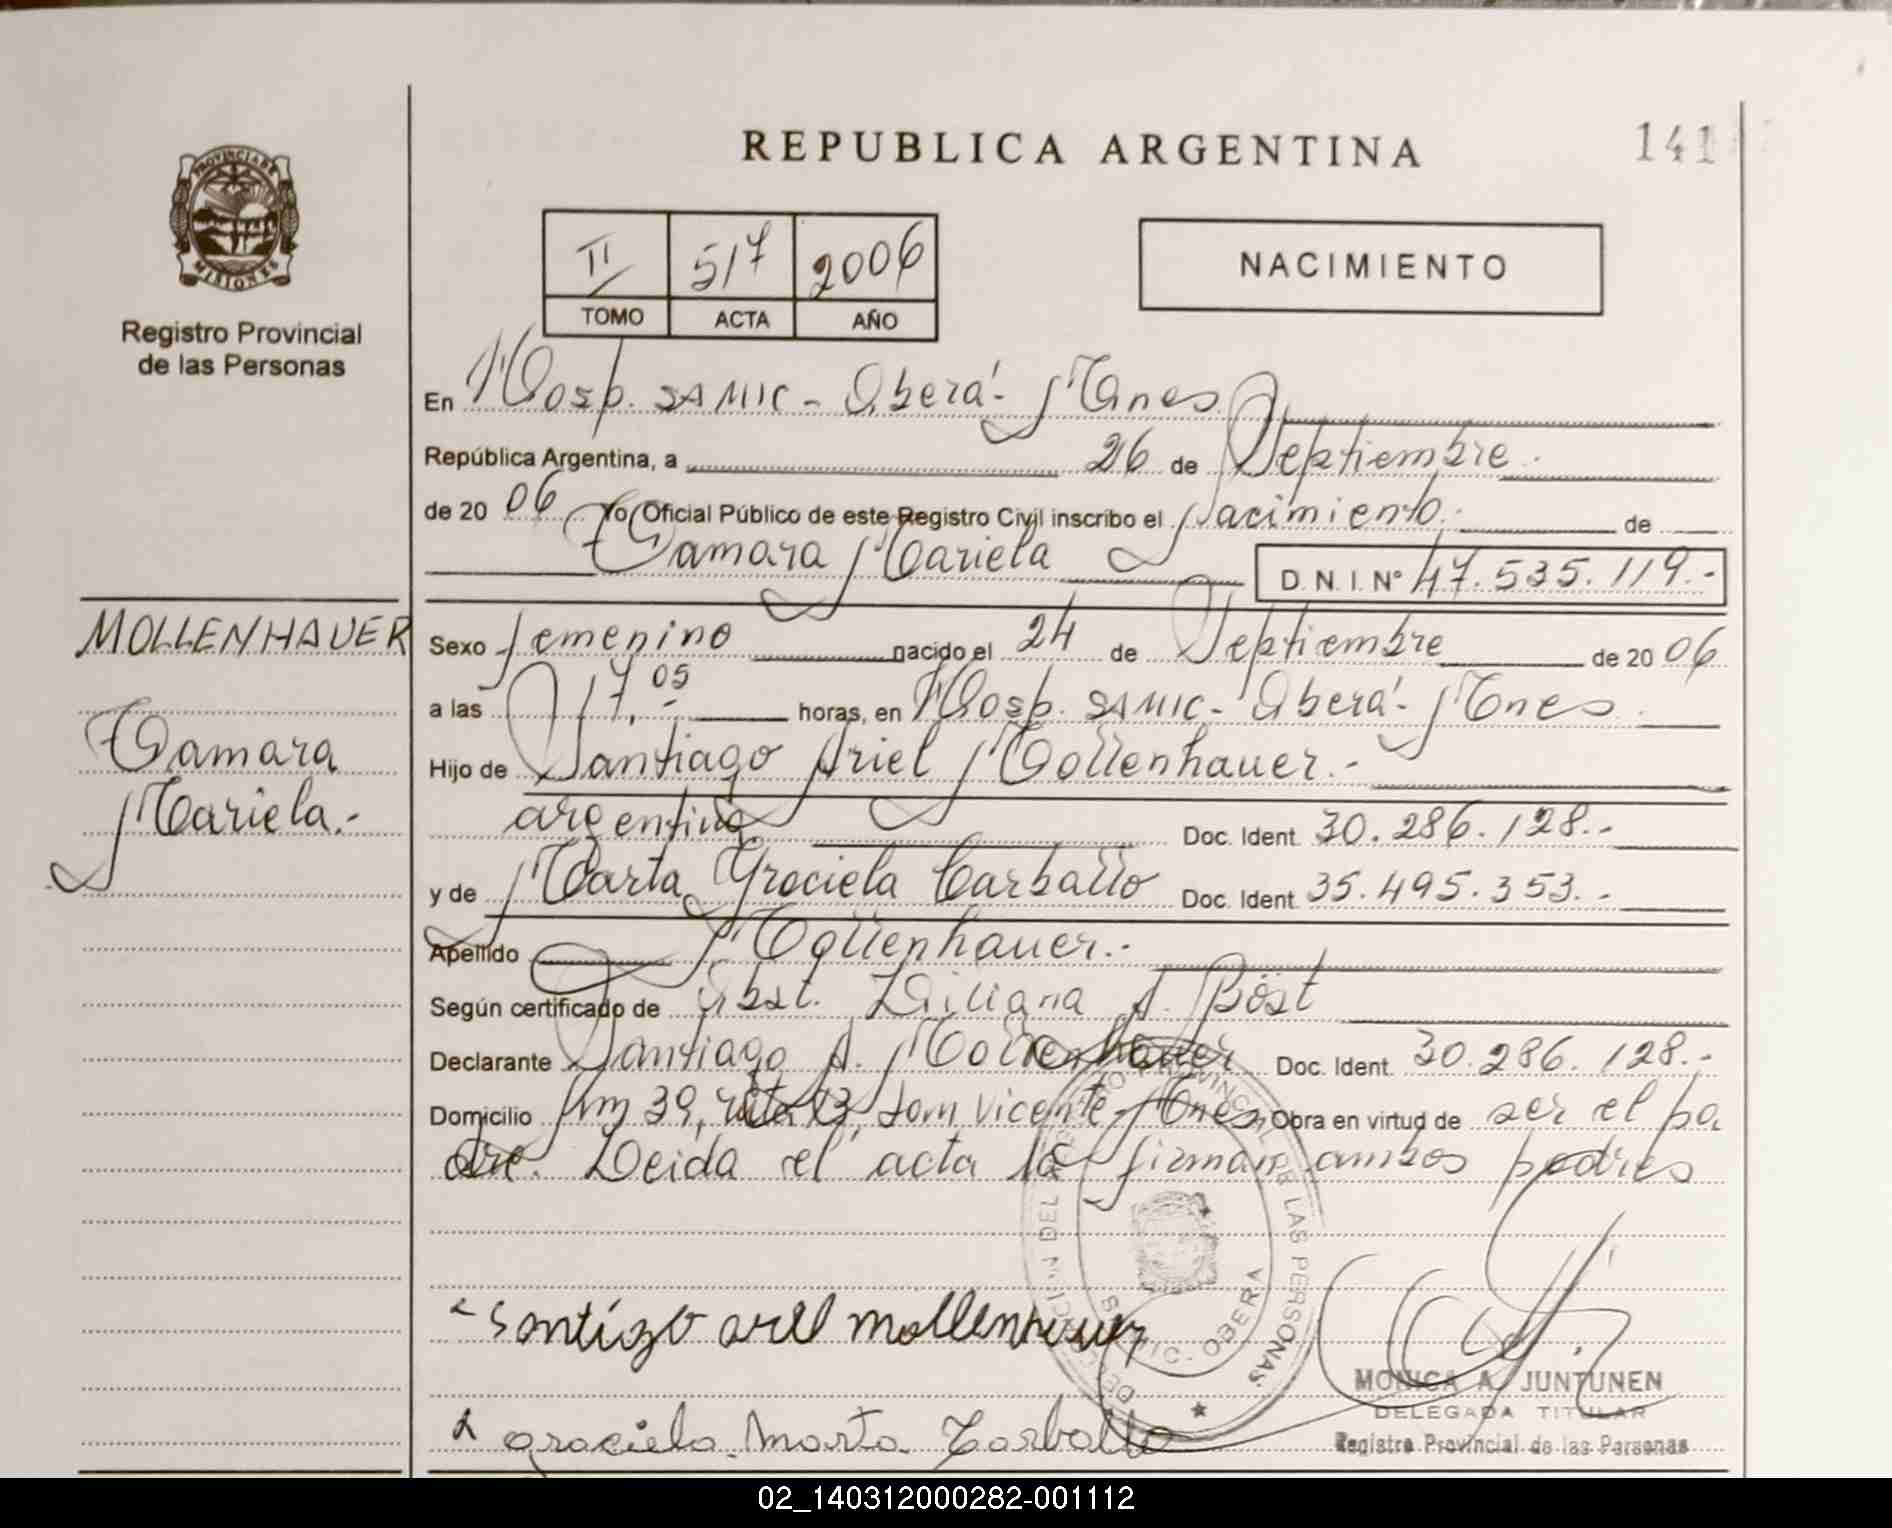 REPUBLICA ARGENTINA
141
PROVINCIA DE
MISIONES
Registro Provincial
de las Personas
II 517 2006
TOMO ACTA AÑO
NACIMIENTO
En Hosp. SAMIC - Oberá - Mnes
República Argentina, a 26 de Septiembre.
de 20 06 Yo, Oficial Público de este Registro Civil inscribo el Nacimiento. de
Tamara Mariela D.N.I. N° 47.535.119.-
MOLLENHAUER
Tamara
Mariela.-
Sexo femenino nacido el 24 de Septiembre de 20 06
a las 17,05 horas, en Hosp. SAMIC - Oberá - Mnes.
Hijo de Santiago Ariel Mollenhauer.-
argentino Doc. Ident. 30.286.128.-
y de Marta Graciela Carballo Doc. Ident. 35.495.353.-
Apellido Mollenhauer.-
Según certificado de Obst. Liliana A. Böst
Declarante Santiago A. Mollenhauer Doc. Ident. 30.286.128.-
Domicilio Km 39, ruta 13, Sam Vicente - Mnes, Obra en virtud de ser el pa
dre. Leida el acta la firman ambos padres
DELEGACION DEL REGISTRO PROVINCIAL DE LAS PERSONAS
OBERA
Santiago ariel mollenhauer
graciela Marta Carballo
MONICA A. JUNTUNEN
DELEGADA TITULAR
Registro Provincial de las Personas
02_140312000282-001112